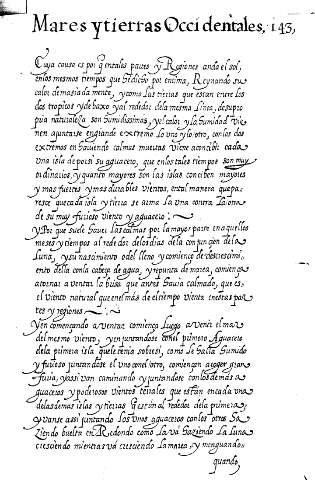 Mares y tierras Occidentales, 143,
Cuya causa es por q̃ en tales partes y Regiones anda el sol,
en los mesmos tiempos que he dicho por encima, Reynando su
calor demasiadamente, y como las tierras que estan entre los
dos tropicos y debaxo y al rededor dela mesma linea, de su pro
pia naturaleza son humidissimas, y el calor y la humidad vie
nen a juntarse en grande extremo lo uno y lo otro, con los dos
extremos en haziendo calmas muertas viene a concibir cada
una isla de por si su aguacero, que en los tales tiempos son muy
ordinarios, y quanto mayores son las islas conciben mayores
y mas furiosos y mas durables vientos, en tal manera que pa
resce que cada isla y tierra se arma la una contra la otra
de su muy furioso viento y aguacero:
y Por que suele haver las calmas por la mayor parte en aquellos
meses y tiempos al rededor delos dias dela conjuncion dela
Luna, y su nascimiento o del lleno y comienço de descrescimi
ento della con la cabeça de agua, y repunta de marea, comiença
a tornar a ventar la brisa que antes havia calmado, que es
el viento natural que en el mas del tiempo vienta en estas par
tes y regiones
y en començando a ventar comiença luego a vencer el mar
del mesmo viento, y en juntandose con el primero Aguacero
dela primera isla que le tenia sobre si, como se halla humido
y furioso juntandose el uno con el otro, comiençan a coger gran
furia, y assi van caminando y juntandose con los demas a
guaceros y poderosos vientos terrales que estan en cada una
delas demas islas y tierras q̃ estan al rededor dela primera,
y vanse assi juntando los unos aguaceros con los otros ha
ziendo buelta en Redondo como la va haziendo la Luna
cresciendo mientras va cresciendo la marea, y menguando
quando